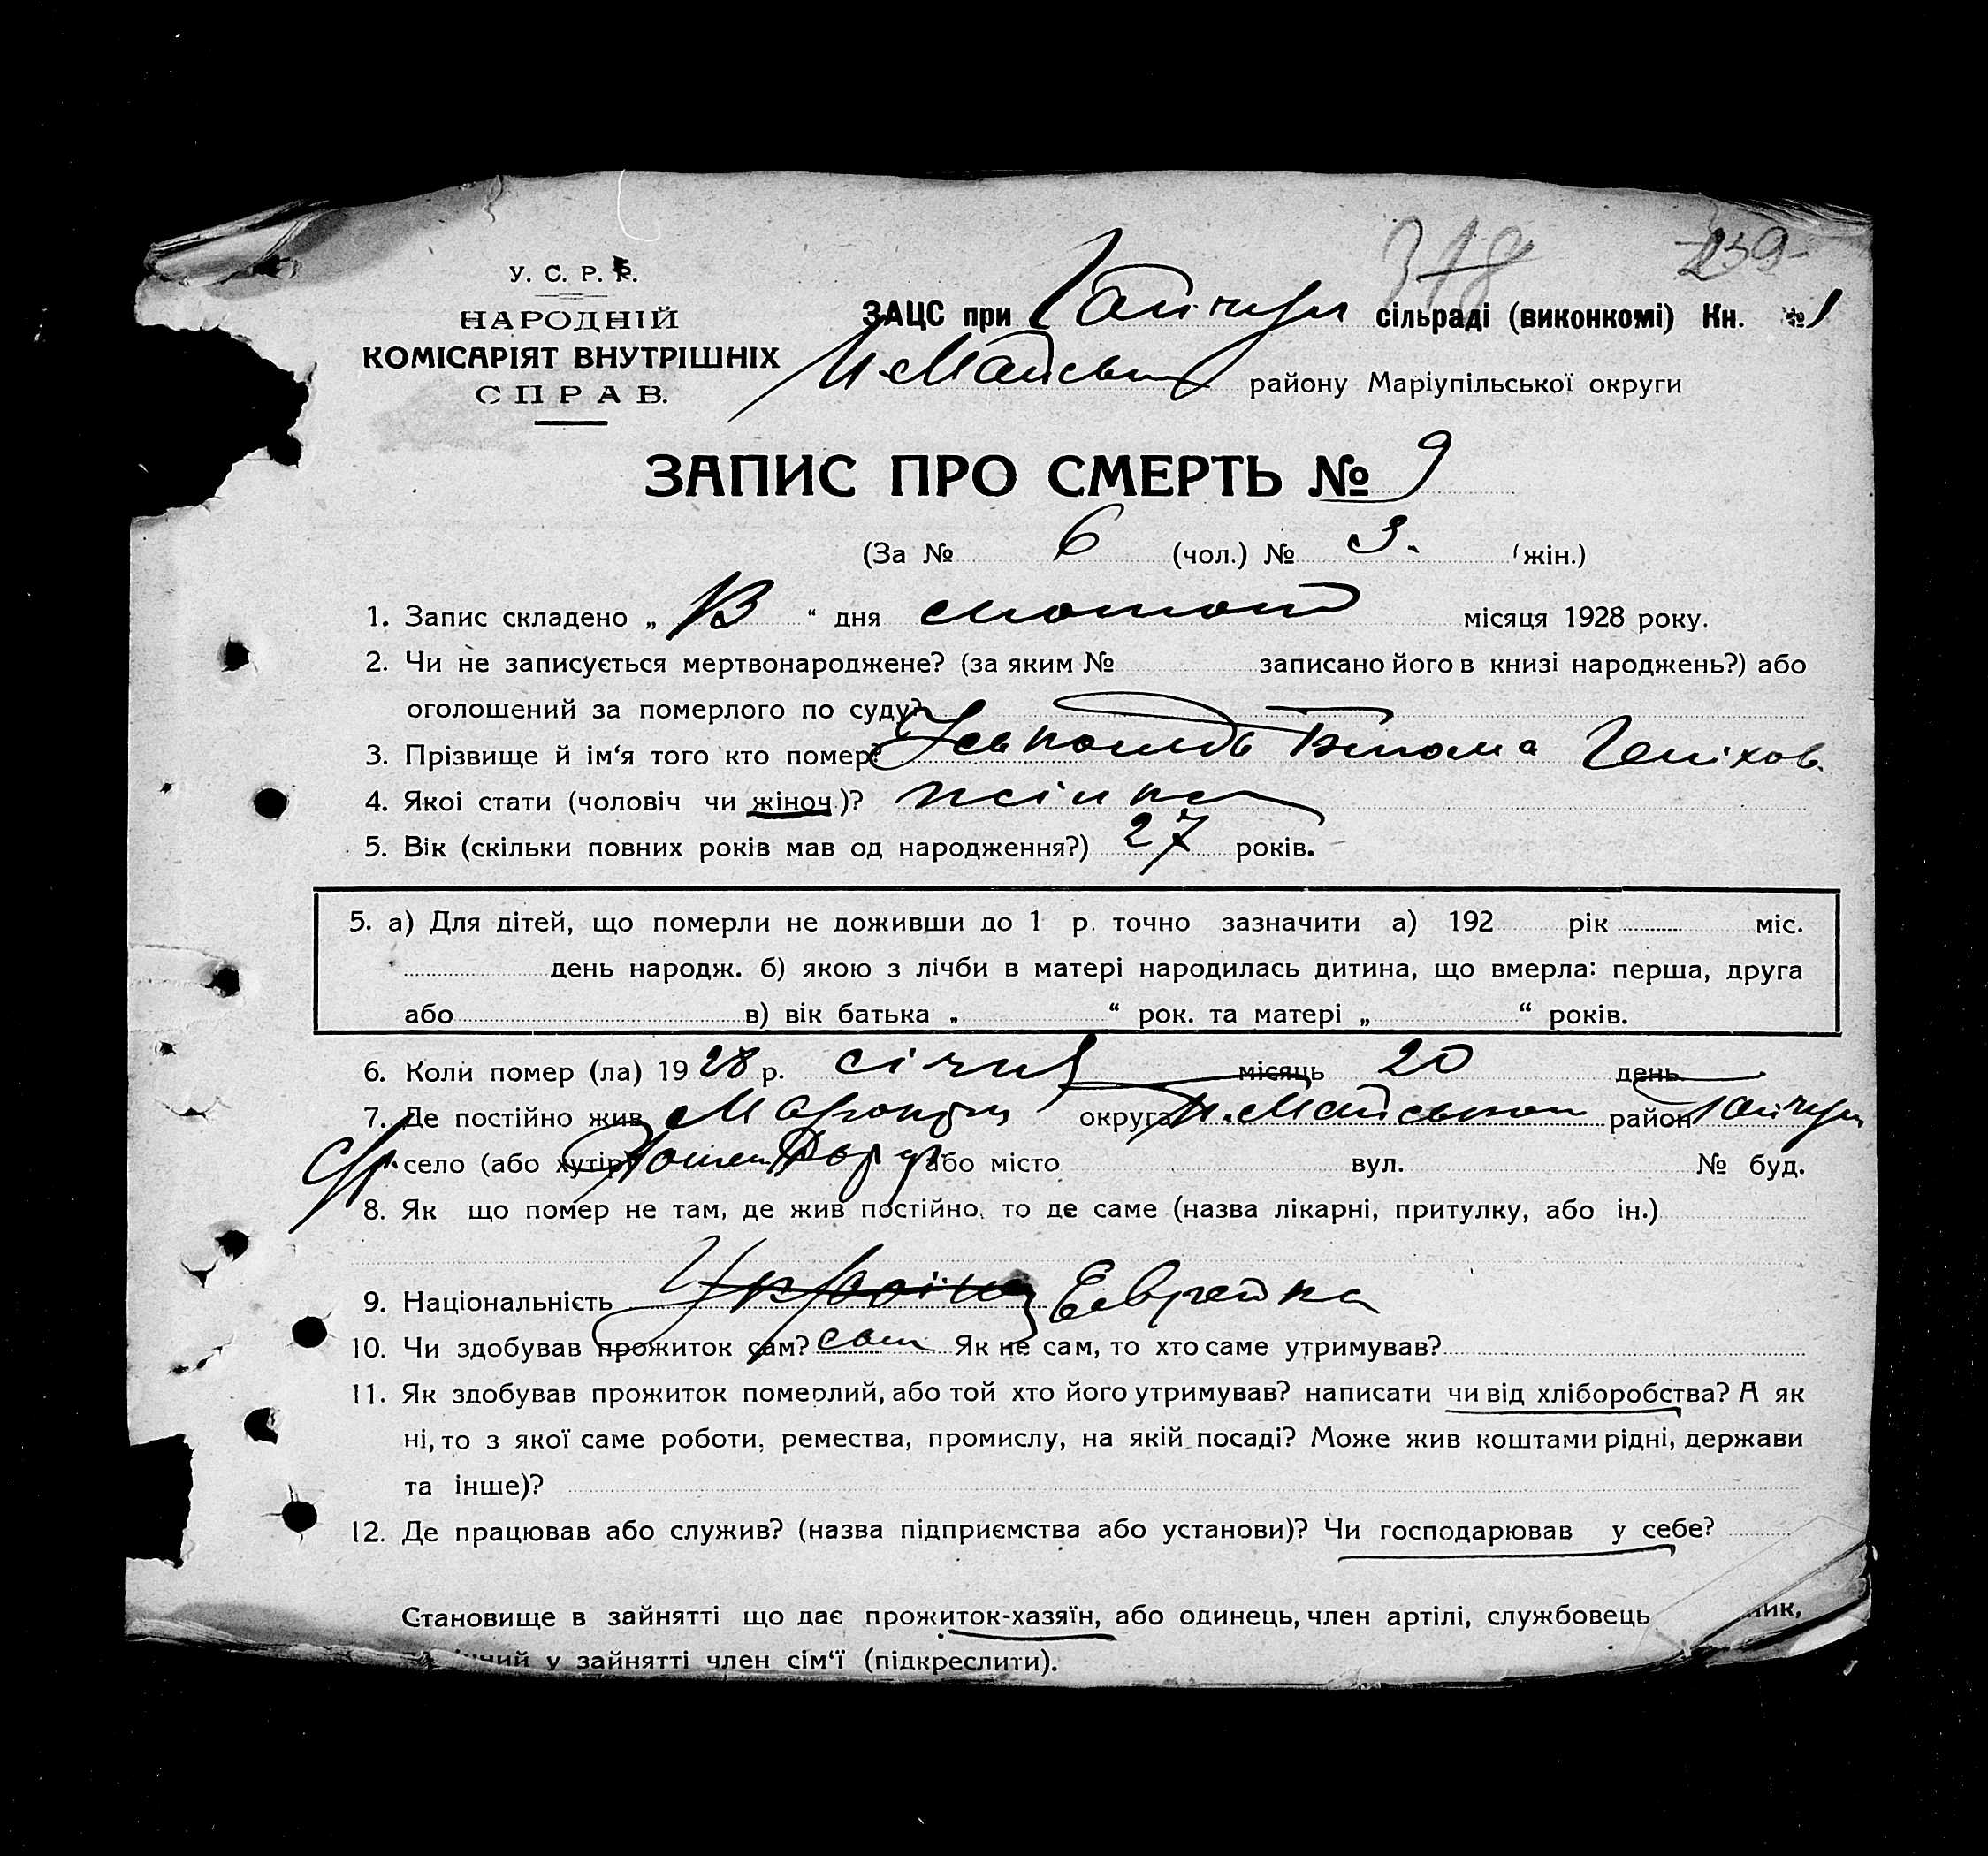 318 239
У. С. Р. Р.
НАРОДНІЙ
КОМІСАРІЯТ ВНУТРІШНІХ
СПРАВ.
ЗАЦС при Гайчур сільраді (виконкомі) Кн. № 1
районy Маріупільської округи
ЗАПИС ПРО СМЕРТЬ № 9
(За № 6 (чол.) № 3. (жін.)
1. Запис складено „ “ дня лютого місяця 1928 року.
2. Чи не записується мертвонароджене? (за яким № записано його в книзі народжень?) або
оголошений за померлого по суду?
3. Прізвище й ім‘я того кто помер?
4. Якоі стати (чоловіч чи жіноч.)? жінка
5. Вік (скільки повних років мав од народження?) 27 років.
5. а) Для дітей, що померли не доживши до 1 р. точно зазначити а) 192 рік міс.
день народж. б) якою з лічби в матері народилась дитина, що вмерла: перша, друга
або в) вік батька „ “ рок. та матері „ “ років.
6. Коли помер (ла) 1928 р. січня місяць 20 день
7. Де постійно жив округа район Гайчур
с/р. село (або хутір) або місто вул. № буд.
8. Як що помер не там, де жив постійно, то де саме (назва лікарні, притулку, або ін.)
9. Національність Еврейка
10. Чи здобував прожиток сам? сам Як не сам, то хто саме утримував?
11. Як здобував прожиток померлий, або той хто його утримував? написати чи від хліборобства? А як
ні, то з якої саме роботи, ремества, промислу, на якій посаді? Може жив коштами рідні, держави
та інше)?
12. Де працював або служив? (назва підприємства або установи)? Чи господарював у себе?
Становище в зайнятті що дає прожиток-хазяїн, або одинець, член артілі, службовець
у зайнятті член сім‘ї (підкреслити).